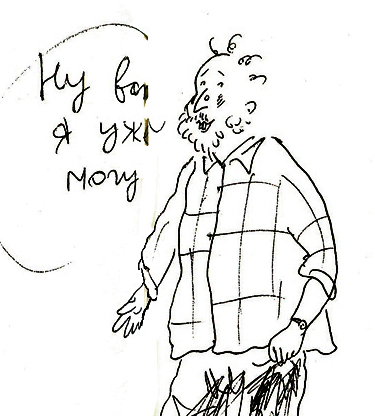 Ну вот
я уже
могу